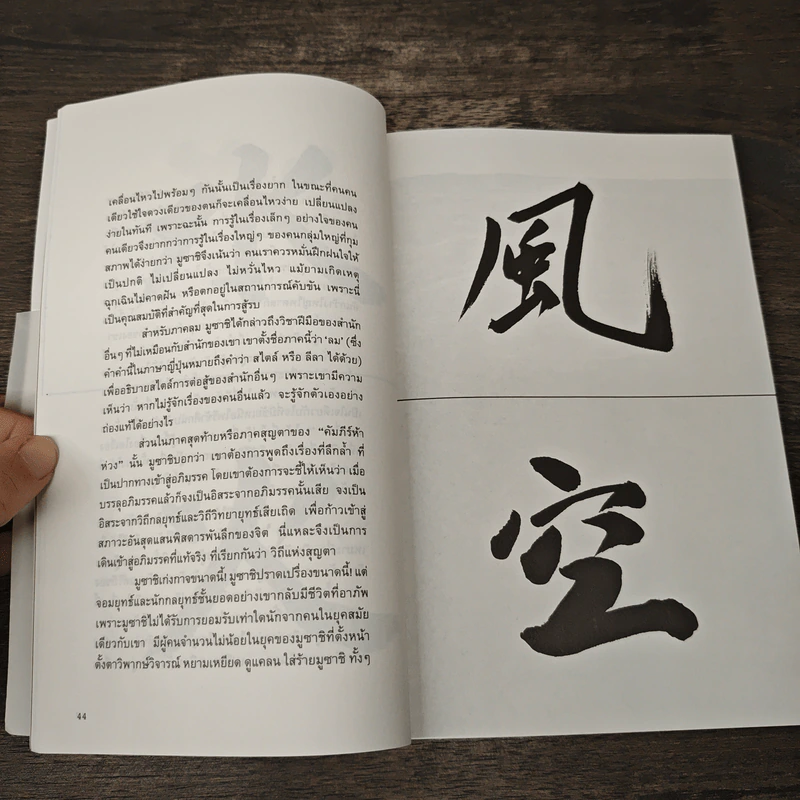 เคลื่อนไหวไปพร้อมๆ กันนั้นเป็นเรื่องยาก ในขณะที่คนคน
เดียวใช้ใจดวงเดียวของตนก็จะเคลื่อนไหวง่าย เปลี่ยนแปลง
ง่ายในทันที เพราะฉะนั้น การรู้ในเรื่องเล็กๆ อย่างใจของคน
คนเดียวจึงยากกว่าการรู้ในเรื่องใหญ่ๆ ของคนกลุ่มใหญ่ที่กุม
สภาพได้ง่ายกว่า มูซาชิจึงเน้นว่า คนเราควรหมั่นฝึกฝนใจให้
เป็นปกติ ไม่เปลี่ยนแปลง ไม่หวั่นไหว แม้ยามเกิดเหตุ
ฉุกเฉินไม่คาดฝัน หรือตกอยู่ในสถานการณ์คับขัน เพราะนี่
เป็นคุณสมบัติที่สำคัญที่สุดในการสู้รบ
สำหรับภาคลม มูซาชิได้กล่าวถึงวิชาฝีมือของสำนัก
อื่นๆ ที่ไม่เหมือนกับสำนักของเขา เขาตั้งชื่อภาคนี้ว่า 'ลม' (ซึ่ง
คำคำนี้ในภาษาญี่ปุ่นหมายถึงคำว่า สไตล์ หรือ ลีลา ได้ด้วย)
เพื่ออธิบายสไตล์การต่อสู้ของสำนักอื่นๆ เพราะเขามีความ
เห็นว่า หากไม่รู้จักเรื่องของคนอื่นแล้ว จะรู้จักตัวเองอย่าง
ถ่องแท้ได้อย่างไร
ส่วนในภาคสุดท้ายหรือภาคสุญตาของ “คัมภีร์ห้า
ห่วง” นั้น มูซาชิบอกว่า เขาต้องการพูดถึงเรื่องที่ลึกล้ำ ที่
เป็นปากทางเข้าสู่อภิมรรค โดยเขาต้องการจะชี้ให้เห็นว่า เมื่อ
บรรลุอภิมรรคแล้วก็จงเป็นอิสระจากอภิมรรคนั้นเสีย จงเป็น
อิสระจากวิถีกลยุทธ์และวิถีวิทยายุทธ์เสียเถิด เพื่อก้าวเข้าสู่
สภาวะอันสุดแสนพิสดารพันลึกของจิต นี่แหละจึงเป็นการ
เดินเข้าสู่อภิมรรคที่แท้จริง ที่เรียกกันว่า วิถีแห่งสุญตา
มูซาชิเก่งกาจขนาดนี้! มูซาชิปราดเปรื่องขนาดนี้! แต่
จอมยุทธ์และนักกลยุทธ์ชั้นยอดอย่างเขากลับมีชีวิตที่อาภัพ
เพราะมูซาชิไม่ได้รับการยอมรับเท่าใดนักจากคนในยุคสมัย
เดียวกับเขา มีผู้คนจำนวนไม่น้อยในยุคของมูซาชิที่ตั้งหน้า
ตั้งตาวิพากษ์วิจารณ์ หยามเหยียด ดูแคลน ใส่ร้ายมูซาชิ ทั้งๆ
44
風
空